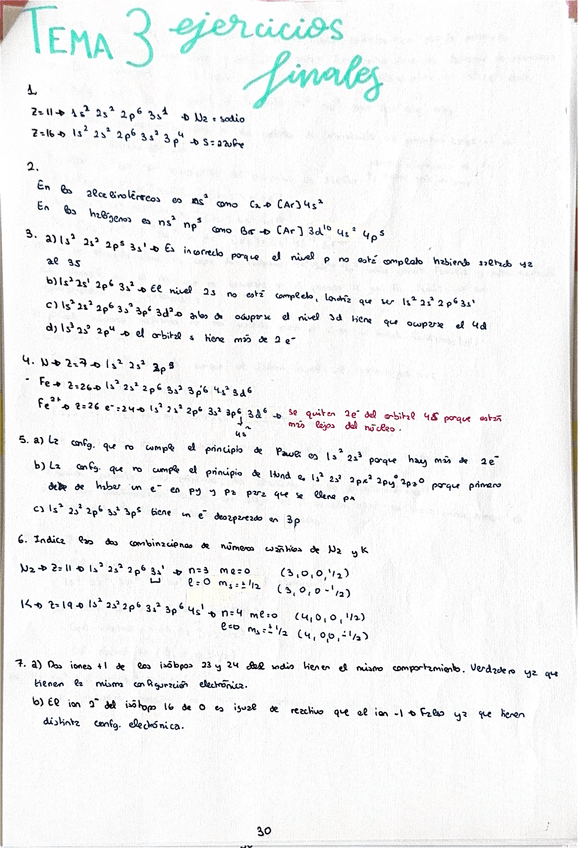 TEMA 3 ejercicios
finales
1.
Z=11 → 1s² 2s² 2p⁶ 3s¹ → Na = sodio
Z=16 → 1s² 2s² 2p⁶ 3s² 3p⁴ → S = azufre
2.
En los alcalinotérreos es ns² como Ca → [Ar] 4s²
En los halógenos es ns² np⁵ como Br → [Ar] 3d¹⁰ 4s² 4p⁵
3. a) 1s² 2s² 2p⁵ 3s¹ → Es incorrecto porque el nivel p no está completo habiendo saltado ya
al 3s
b) 1s² 2s¹ 2p⁶ 3s² → El nivel 2s no está completo, tendría que ser 1s² 2s² 2p⁶ 3s¹
c) 1s² 2s² 2p⁶ 3s² 3p⁶ 3d² → antes de ocuparse el nivel 3d tiene que ocuparse el 4d
d) 1s² 2s³ 2p⁴ → el orbital s tiene más de 2 e⁻
4. N → Z=7 → 1s² 2s² 2p³
- Fe → Z=26 → 1s² 2s² 2p⁶ 3s² 3p⁶ 4s² 3d⁶
Fe²⁺ → Z=26 e⁻=24 → 1s² 2s² 2p⁶ 3s² 3p⁶ 3d⁶ → se quitan 2e⁻ del orbital 4s porque están
4s más lejos del núcleo.
5. a) La confg. que no cumple el principio de Pauli es 1s² 2s³ porque hay más de 2 e⁻
b) La confg. que no cumple el principio de Hund es 1s² 2s² 2px² 2py⁰ 2pz⁰ porque primero
debe de haber un e⁻ en py y pz para que se llene px
c) 1s² 2s² 2p⁶ 3s² 3p⁵ tiene un e⁻ desapareado en 3p
6. Indica las dos combinaciones de números cuánticos de Na y K
Na → Z=11 → 1s² 2s² 2p⁶ 3s¹ → n=3 ml=0 (3,0,0,1/2)
l=0 ms=±1/2 (3,0,0-1/2)
K → Z=19 → 1s² 2s² 2p⁶ 3s² 3p⁶ 4s¹ → n=4 ml=0 (4,0,0,1/2)
l=0 ms=±1/2 (4,0,0,-1/2)
7. a) Dos iones +1 de los isótopos 23 y 24 del sodio tienen el mismo comportamiento. Verdadero ya que
tienen la misma configuración electrónica.
b) El ion 2⁻ del isótopo 16 de O es igual de reactivo que el ion -1 → Falso ya que tienen
distinta confg. electrónica.
30